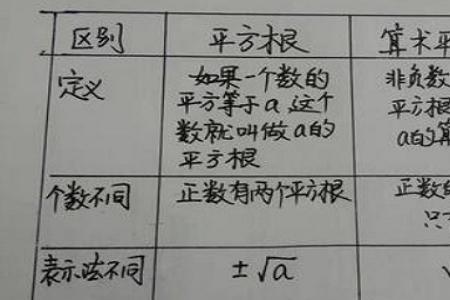 区别 平方根 算术平
定义 如果一个数的 非负数
平方等于a,这个 平方根
数就叫做a的 a的算
平方根
个数不同 正数有两个平方根 正数的
只
表示法不同 ±√a √